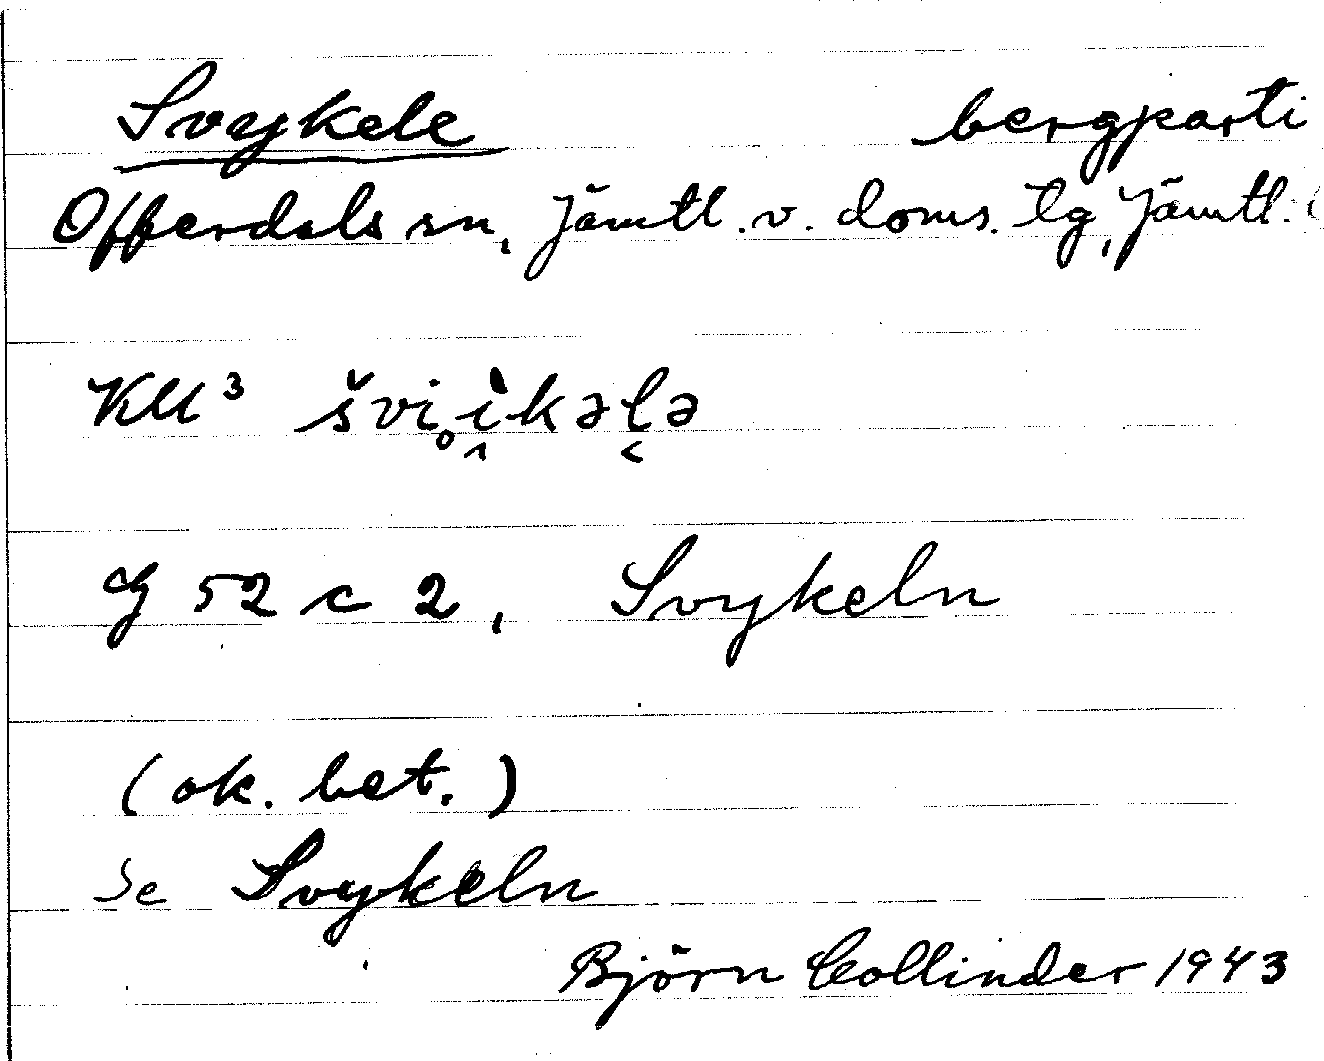 Svykele bergparti
Offerdals sn, Jämtl. v. doms. tg, Jämtl.
KU³ švi̥ì̭kəl̬ə
G 52 c 2, Svykeln
(ok. bet.)
Se Svykeln
Björn Collinder 1943